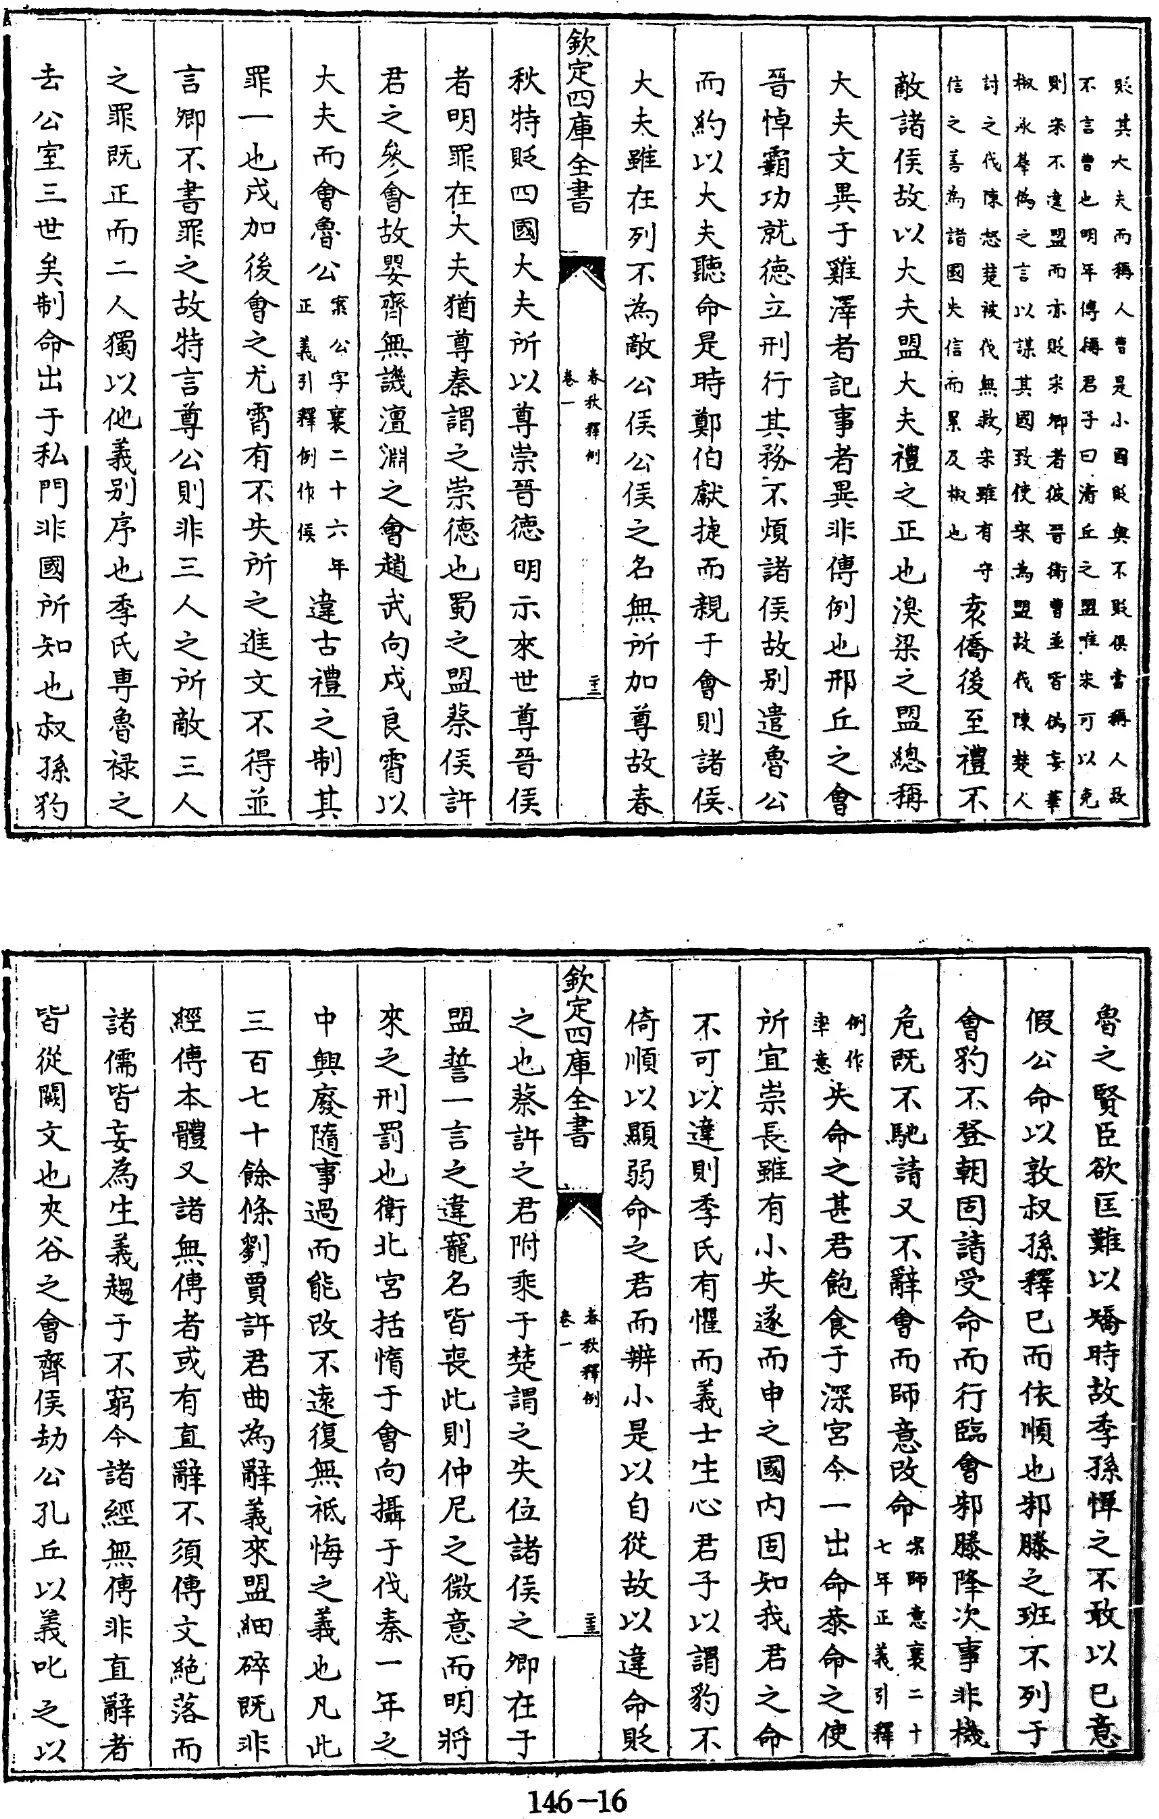 貶其大夫而稱人曹是小國貶與不貶俱當稱人故
不言曹也明年傳稱君子曰清丘之盟唯宋可以免
則宋不違盟而亦貶宋卿者彼晉衛曹並皆偽妄華
椒承羣偽之言以謀其國致使宋為盟故伐陳楚人
討之伐陳怒楚被伐無救宋雖有守
信之善為諸國失信而累及椒也
袁僑後至禮不
敵諸侯故以大夫盟大夫禮之正也溴梁之盟總稱
大夫文異于雞澤者記事者異非傳例也邢丘之會
晉悼霸功就德立刑行其務不煩諸侯故別遣魯公
而約以大夫聽命是時鄭伯獻捷而親于會則諸侯
大夫雖在列不為敵公侯公侯之名無所加尊故春
欽定四庫全書
春秋釋例
卷一
秋特貶四國大夫所以尊崇晉德明示來世尊晉侯
者明罪在大夫猶尊秦謂之崇德也蜀之盟蔡侯許
君之參會故嬰齊無譏澶淵之會趙武向戌良霄以
大夫而會魯公
案公字襄二十六年
正義引釋例作侯
違古禮之制其
罪一也戌加後會之尤霄有不失所之進文不得並
言卿不書罪之故特言尊公則非三人之所敵三人
之罪既正而二人獨以他義別序也季氏專魯祿之
去公室三世矣制命出于私門非國所知也叔孫豹
魯之賢臣欲匡難以矯時故季孫憚之不敢以已意
假公命以敦叔孫釋已而依順也邾滕之班不列于
會豹不登朝固請受命而行臨會邾滕降次事非機
危既不馳請又不辭會而師意改命
案師意襄二十
七年正義引釋
例作
率意
失命之甚君飽食于深宮今一出命恭命之使
所宜崇長雖有小失遂而申之國內固知我君之命
不可以違則季氏有懼而義士生心君子以謂豹不
倚順以顯弱命之君而辨小是以自從故以違命貶
欽定四庫全書
春秋釋例
卷一
之也蔡許之君附乘于楚謂之失位諸侯之卿在于
盟誓一言之違寵名皆喪此則仲尼之微意而明將
來之刑罰也衛北宮括惰于會向攝于伐秦一年之
中興廢隨事過而能改不遠復無祗悔之義也凡此
三百七十餘條劉賈許君曲為辭義來盟細碎既非
經傳本體又諸無傳者或有直辭不須傳文絕落而
諸儒皆妄為生義趨于不窮今諸經無傳非直辭者
皆從闕文也夾谷之會齊侯劫公孔丘以義叱之以
146-16